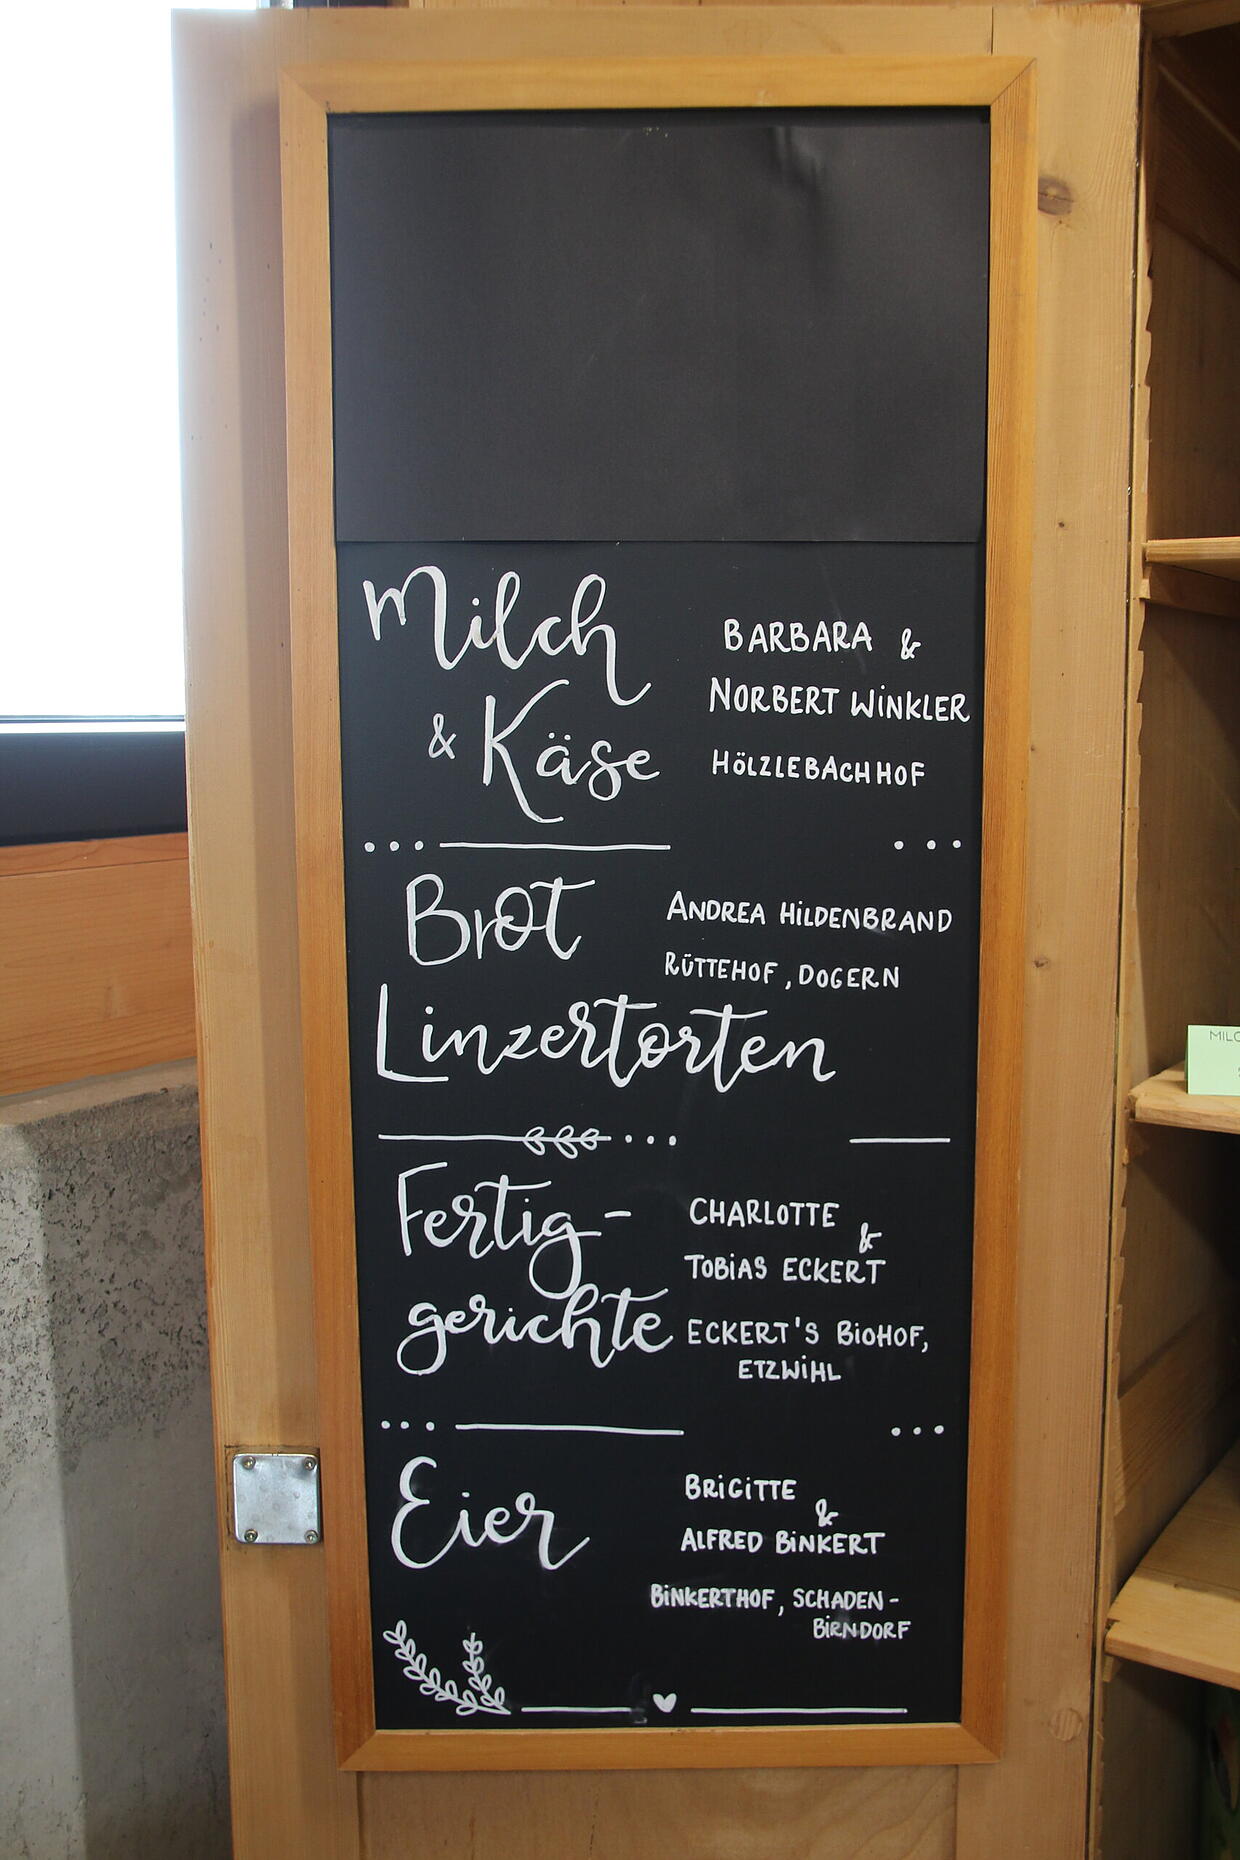 Milch
& Käse
BARBARA &
NORBERT WINKLER
HÖLZLEBACHHOF
Brot
ANDREA HILDENBRAND
RÜTTEHOF, DOGERN
Linzertorten
Fertig-
gerichte
CHARLOTTE
&
TOBIAS ECKERT
ECKERT'S BIOHOF,
ETZWIHL
Eier
BRIGITTE
&
ALFRED BINKERT
BINKERTHOF, SCHADEN-
BIRNDORF